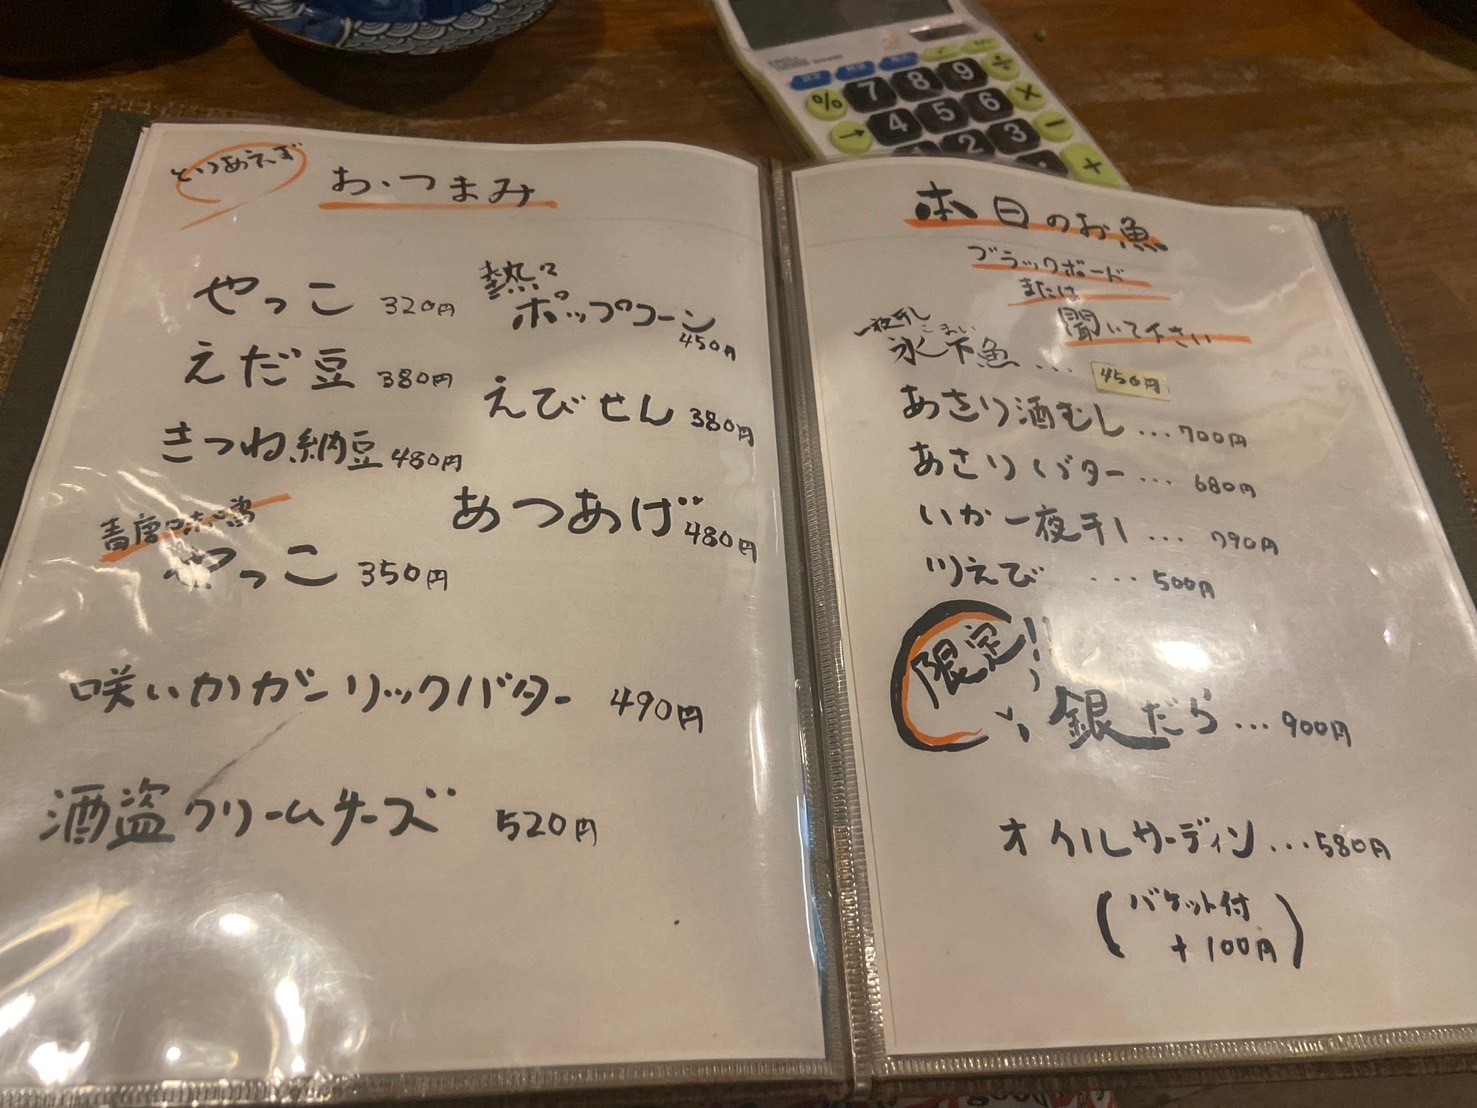 とりあえず
おつまみ
やっこ 320円
熱々
ポップコーン
450円
えだ豆 380円
えびせん 380円
きつね納豆 480円
あつあげ 480円
青唐味噌
やっこ 350円
咲いかガーリックバター 490円
酒盗クリームチーズ 520円
本日のお魚
ブラックボード
または
聞いて下さい
一夜干し
こまい
氷下魚 ... 450円
あさり酒むし ... 700円
あさりバター ... 680円
いか一夜干し ... 790円
川えび ... 500円
限定!!
銀だら ... 900円
オイルサーディン ... 580円
(バケット付
+100円)
% 7 8 9 ÷
→ 4 5 6 ×
2 3 −
+